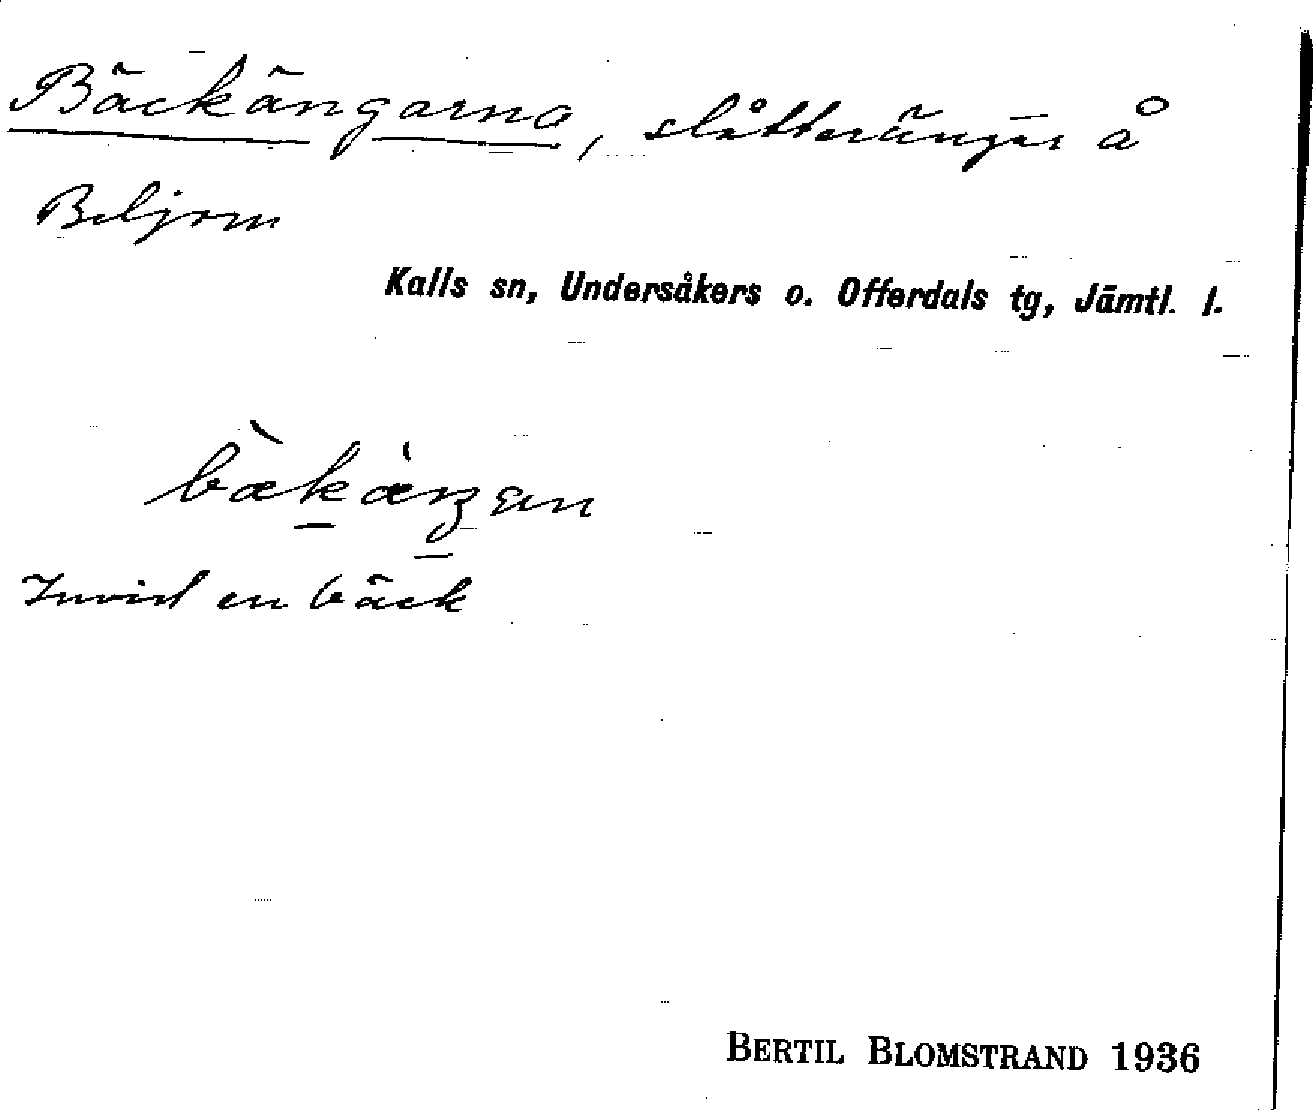 Bäckängarna, slåtterängar å
Beljom
Kalls sn, Undersåkers o. Offerdals tg, Jämtl. l.
Invid en bäck
BERTIL BLOMSTRAND 1936